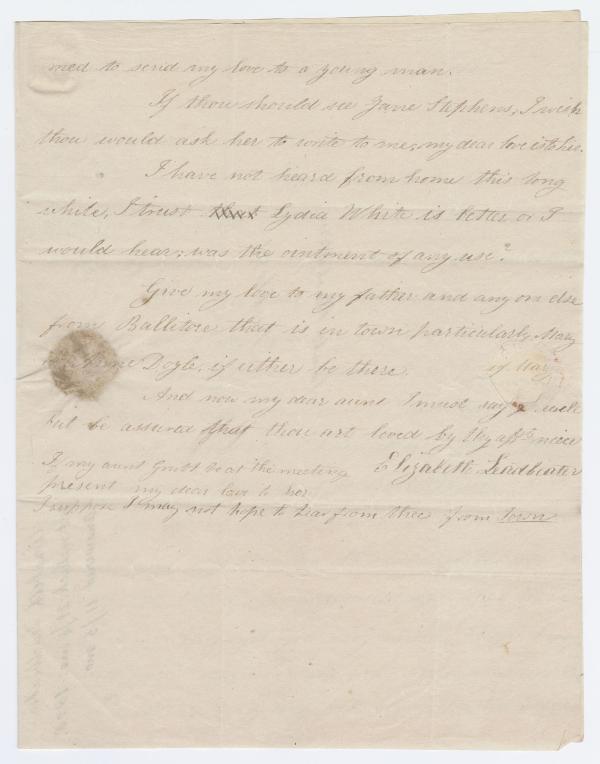 med to send my love to a young man.
If thou should see Jane Stephens, I wish
thou would ask her to write to me, my dear love is to her.
I have not heard from home this long
while, I trust that Lydia White is better or I
would hear; was the ointment of any use?
Give my love to my father and any one else
from Ballitore that is in town particularly Mary
Anne Doyle, if either be there.
if Mary
And now my dear aunt I must say well
but be assured that thou art loved by thy afft. niece
Elizabeth Leadbeater
If my aunt Grubb be at the meeting
present my dear love to her
I suppose I may not hope to hear from thee from town